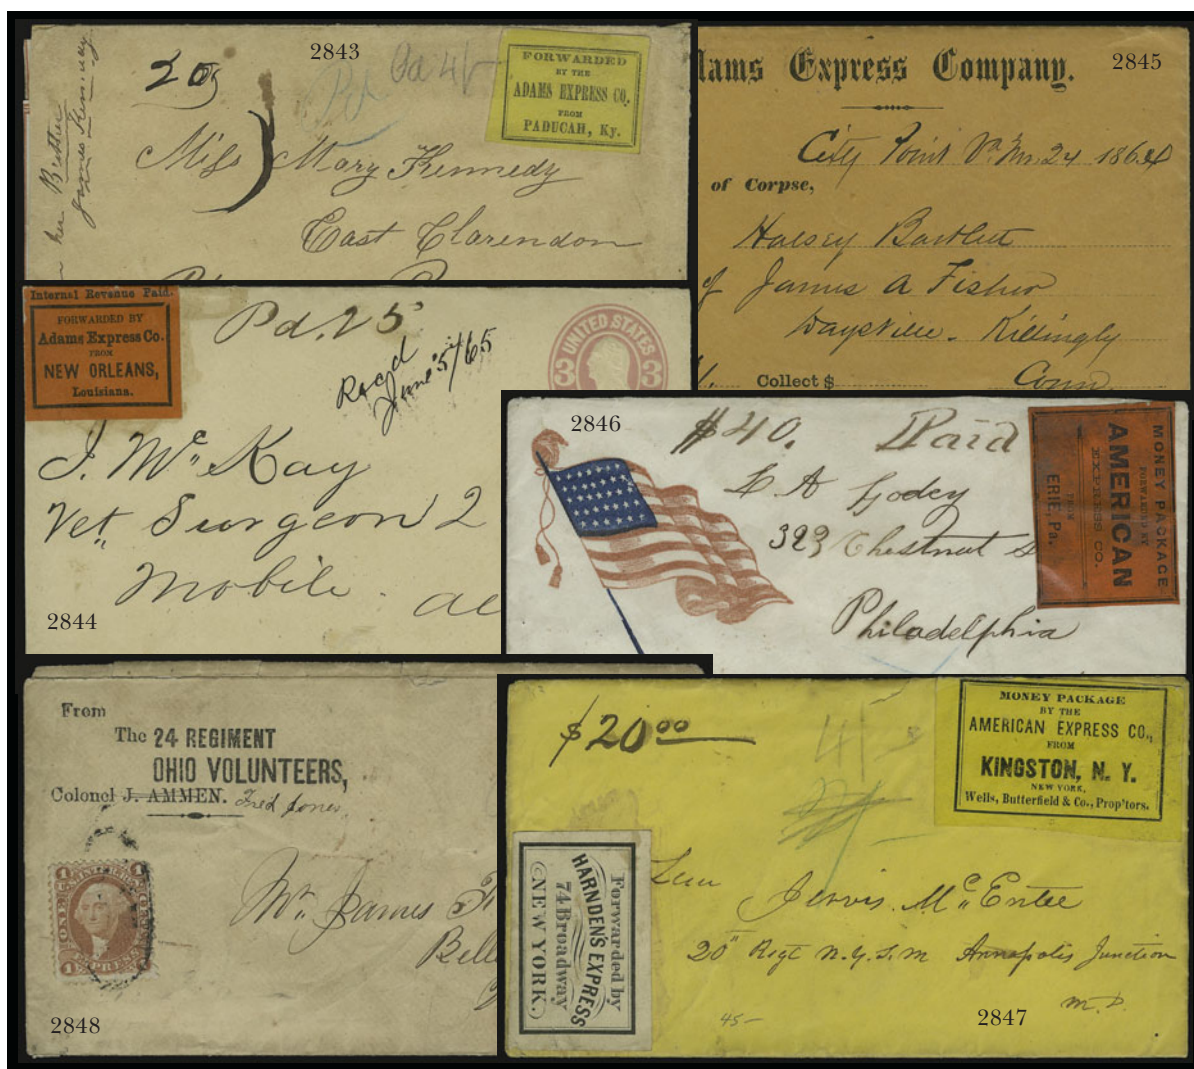 2843
20
Pd.
FORWARDED
BY THE
ADAMS EXPRESS CO.
FROM
PADUCAH, Ky.
Miss Mary Kennedy
East Clarendon
her Brother
James Kennedy
dams Express Company.
2845
City Point Va. 24 1864
of Corpse,
Halsey Bartlett
of James A Fisher
Daysville. Killingly
Collect $ Conn.
Internal Revenue Paid.
FORWARDED BY
Adams Express Co.
FROM
NEW ORLEANS,
Louisiana.
Pd. 25
Recd
June 5/65
UNITED STATES
3 3
J. Mc Kay
Vet. Surgeon 2
Mobile. al
2844
2846
$40. Paid
L A Godey
323 Chestnut S
Philadelphia
MONEY PACKAGE
FORWARDED BY
AMERICAN
EXPRESS CO.
FROM
ERIE, Pa.
From
The 24 REGIMENT
OHIO VOLUNTEERS,
Colonel J. AMMEN. Fred Jones
1 1
ONE
1 EXPRESS 1
Mr. James
Bell
2848
$20.00
MONEY PACKAGE
BY THE
AMERICAN EXPRESS CO.,
FROM
KINGSTON, N. Y.
NEW YORK.
Wells, Butterfield & Co., Prop'tors.
Forwarded by
HARNDEN'S EXPRESS
74 Broadway
NEW YORK.
Jervis Mc Entee
20" Regt N.Y.S.M Annapolis Junction
M.D.
45-
2847